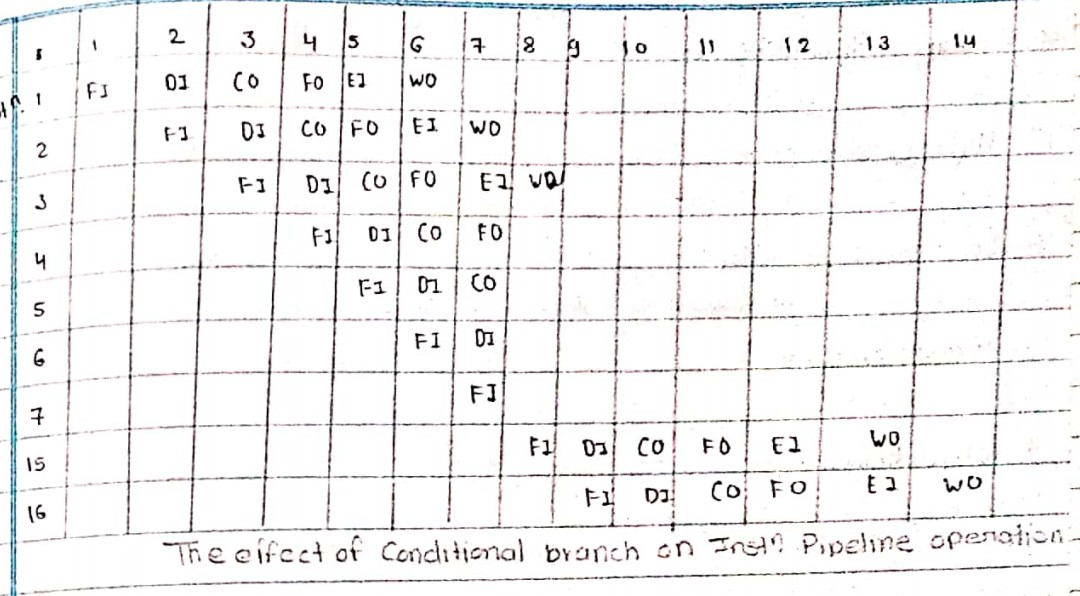 s 1 2 3 4 5 6 7 8 9 10 11 12 13 14
1 FI DI CO FO EI WO
2 FI DI CO FO EI WO
3 FI DI CO FO EI WO
4 FI DI CO FO
5 FI DI CO
6 FI DI
7 FI
15 FI DI CO FO EI WO
16 FI DI CO FO EI WO
The effect of Conditional branch on Instn Pipeline operation